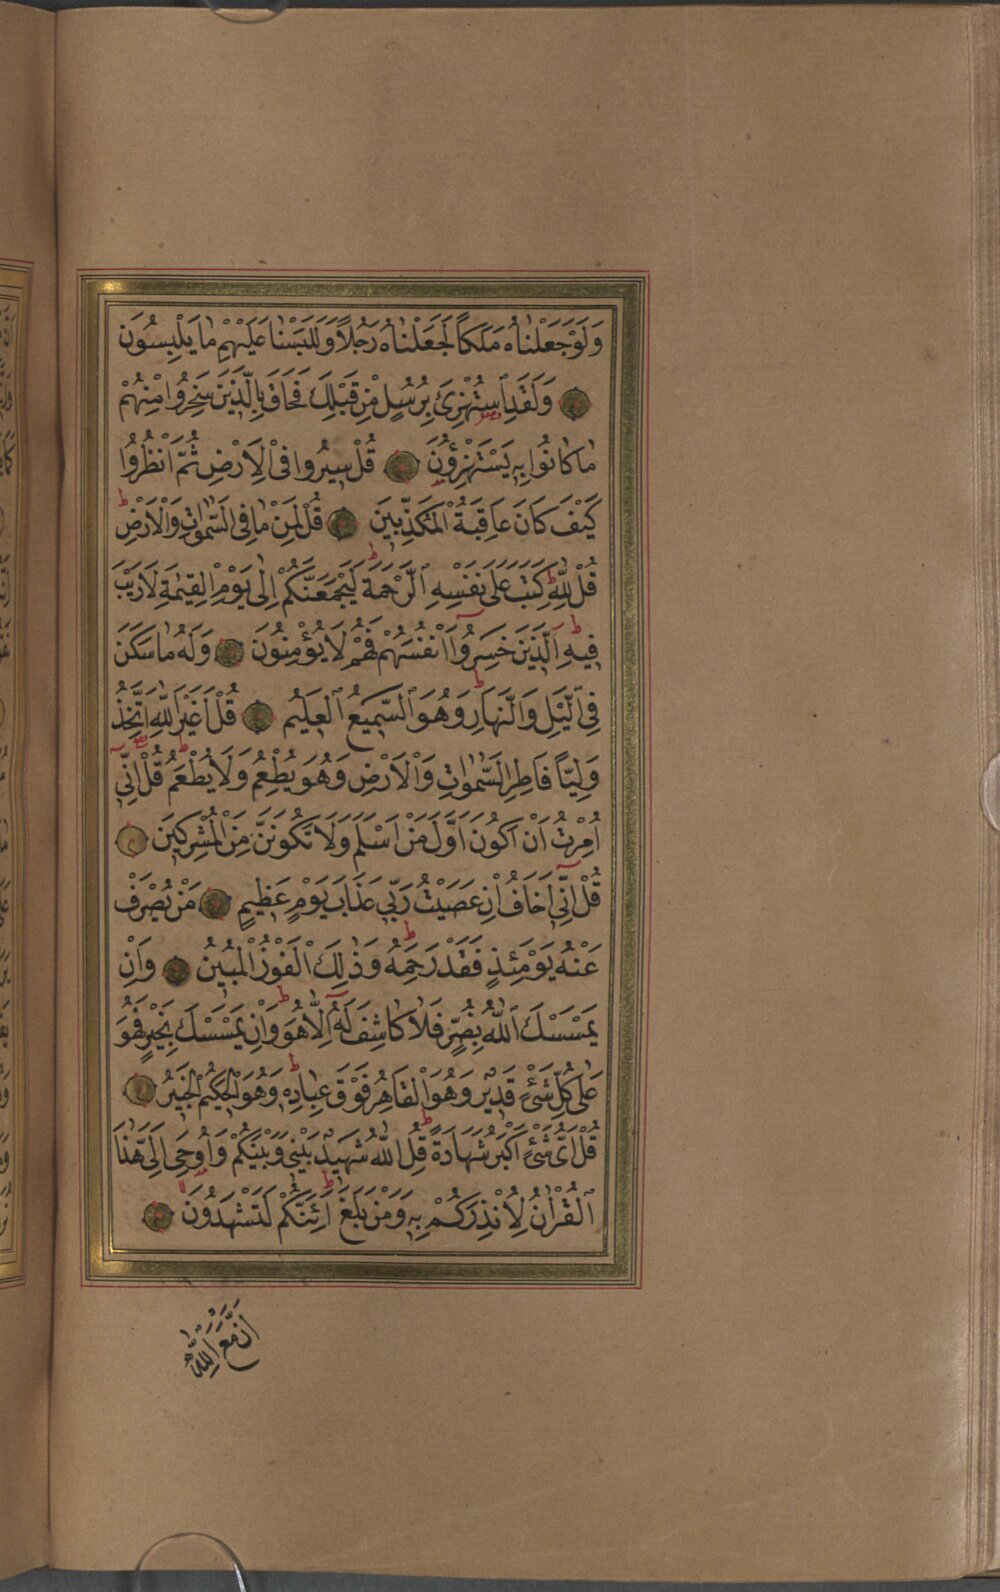 وَلَوْ جَعَلْنَاهُ مَلَكاً لَجَعَلْنَاهُ رَجُلاً وَلَلَبَسْنَا عَلَيْهِمْ مَا يَلْبِسُونَ
وَلَقَدِ اسْتُهْزِئَ بِرُسُلٍ مِنْ قَبْلِكَ فَحَاقَ بِالَّذِينَ سَخِرُوا مِنْهُمْ
مَا كَانُوا بِهِ يَسْتَهْزِؤُنَ قُلْ سِيرُوا فِى الْاَرْضِ ثُمَّ انْظُرُوا
كَيْفَ كَانَ عَاقِبَةُ الْمُكَذِّبِينَ قُلْ لِمَنْ مَا فِى السَّمٰوَاتِ وَالْاَرْضِ
قُلْ لِلّٰهِ كَتَبَ عَلٰى نَفْسِهِ الرَّحْمَةَ لَيَجْمَعَنَّكُمْ اِلٰى يَوْمِ الْقِيٰمَةِ لَا رَيْبَ
فِيهِ اَلَّذِينَ خَسِرُوا اَنْفُسَهُمْ فَهُمْ لَا يُؤْمِنُونَ وَلَهُ مَا سَكَنَ
فِى الَّيْلِ وَالنَّهَارِ وَهُوَ السَّمِيعُ الْعَلِيمُ قُلْ اَغَيْرَ اللّٰهِ اَتَّخِذُ
وَلِيًّا فَاطِرِ السَّمٰوَاتِ وَالْاَرْضِ وَهُوَ يُطْعِمُ وَلَا يُطْعَمُ قُلْ اِنِّى
اُمِرْتُ اَنْ اَكُونَ اَوَّلَ مَنْ اَسْلَمَ وَلَا تَكُونَنَّ مِنَ الْمُشْرِكِينَ
قُلْ اِنِّى اَخَافُ اِنْ عَصَيْتُ رَبِّى عَذَابَ يَوْمٍ عَظِيمٍ مَنْ يُصْرَفْ
عَنْهُ يَوْمَئِذٍ فَقَدْ رَحِمَهُ وَذٰلِكَ الْفَوْزُ الْمُبِينُ وَاِنْ
يَمْسَسْكَ اللّٰهُ بِضُرٍّ فَلَا كَاشِفَ لَهُ اِلَّا هُوَ وَاِنْ يَمْسَسْكَ بِخَيْرٍ فَهُوَ
عَلٰى كُلِّ شَىْءٍ قَدِيرٌ وَهُوَ الْقَاهِرُ فَوْقَ عِبَادِهِ وَهُوَ الْحَكِيمُ الْخَبِيرُ
قُلْ اَىُّ شَىْءٍ اَكْبَرُ شَهَادَةً قُلِ اللّٰهُ شَهِيدٌ بَيْنِى وَبَيْنَكُمْ وَاُوحِىَ اِلَىَّ هٰذَا
الْقُرْاٰنُ لِاُنْذِرَكُمْ بِهِ وَمَنْ بَلَغَ اَئِنَّكُمْ لَتَشْهَدُونَ
اَنَّ مَعَ اللّٰهِ